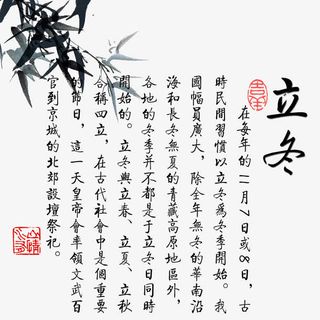 立冬
在每年的11月7日或8日，古
時民間習慣以立冬爲冬季開始。我
國幅員廣大，除全年無冬的華南沿
海和長冬無夏的青藏高原地區外，
各地的冬季并不都是于立冬日同時
開始的。立冬與立春、立夏、立秋
合稱四立，在古代社會中是個重要
的節日，這一天皇帝會率領文武百
官到京城的北郊設壇祭祀。